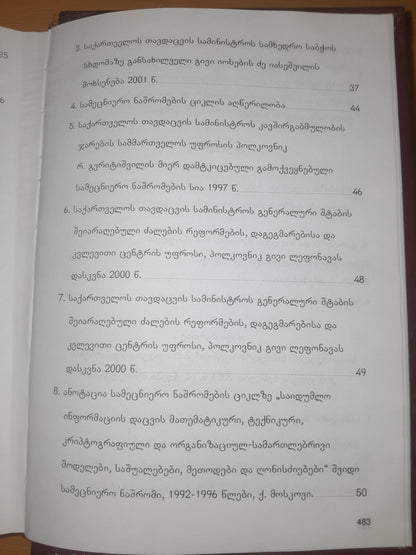 3. საქართველოს თავდაცვის სამინისტროს სამხედრო საბჭოს
სხდომაზე განსახილველი გივი იოსების ძე იასეშვილის
მოხსენება 2001 წ. 37
4. სამეცნიერო ნაშრომების ციკლის აღწერილობა 44
5. საქართველოს თავდაცვის სამინისტროს კავშირგაბმულობის
ჯარების სამმართველოს უფროსის პოლკოვნიკ
რ. გვრიტიშვილის მიერ დამტკიცებული გამოქვეყნებული
სამეცნიერო ნაშრომების სია 1997 წ. 46
6. საქართველოს თავდაცვის სამინისტროს გენერალური შტაბის
შეიარაღებული ძალების რეფორმების, დაგეგმარებისა და
კვლევითი ცენტრის უფროსი, პოლკოვნიკ გივი ლეფონავას
დასკვნა 2000 წ. 48
7. საქართველოს თავდაცვის სამინისტროს გენერალური შტაბის
შეიარაღებული ძალების რეფორმების, დაგეგმარებისა და
კვლევითი ცენტრის უფროსი, პოლკოვნიკ გივი ლეფონავას
დასკვნა 2000 წ. 49
8. ანოტაცია სამეცნიერო ნაშრომების ციკლზე „საიდუმლო
ინფორმაციის დაცვის მათემატიკური, ტექნიკური,
კრიპტოგრაფიული და ორგანიზაციულ-სამართლებრივი
მოდელები, საშუალებები, მეთოდები და ღონისძიებები" შვიდი
სამეცნიერო ნაშრომი, 1992-1996 წლები, ქ. მოსკოვი. 50
483
25
6